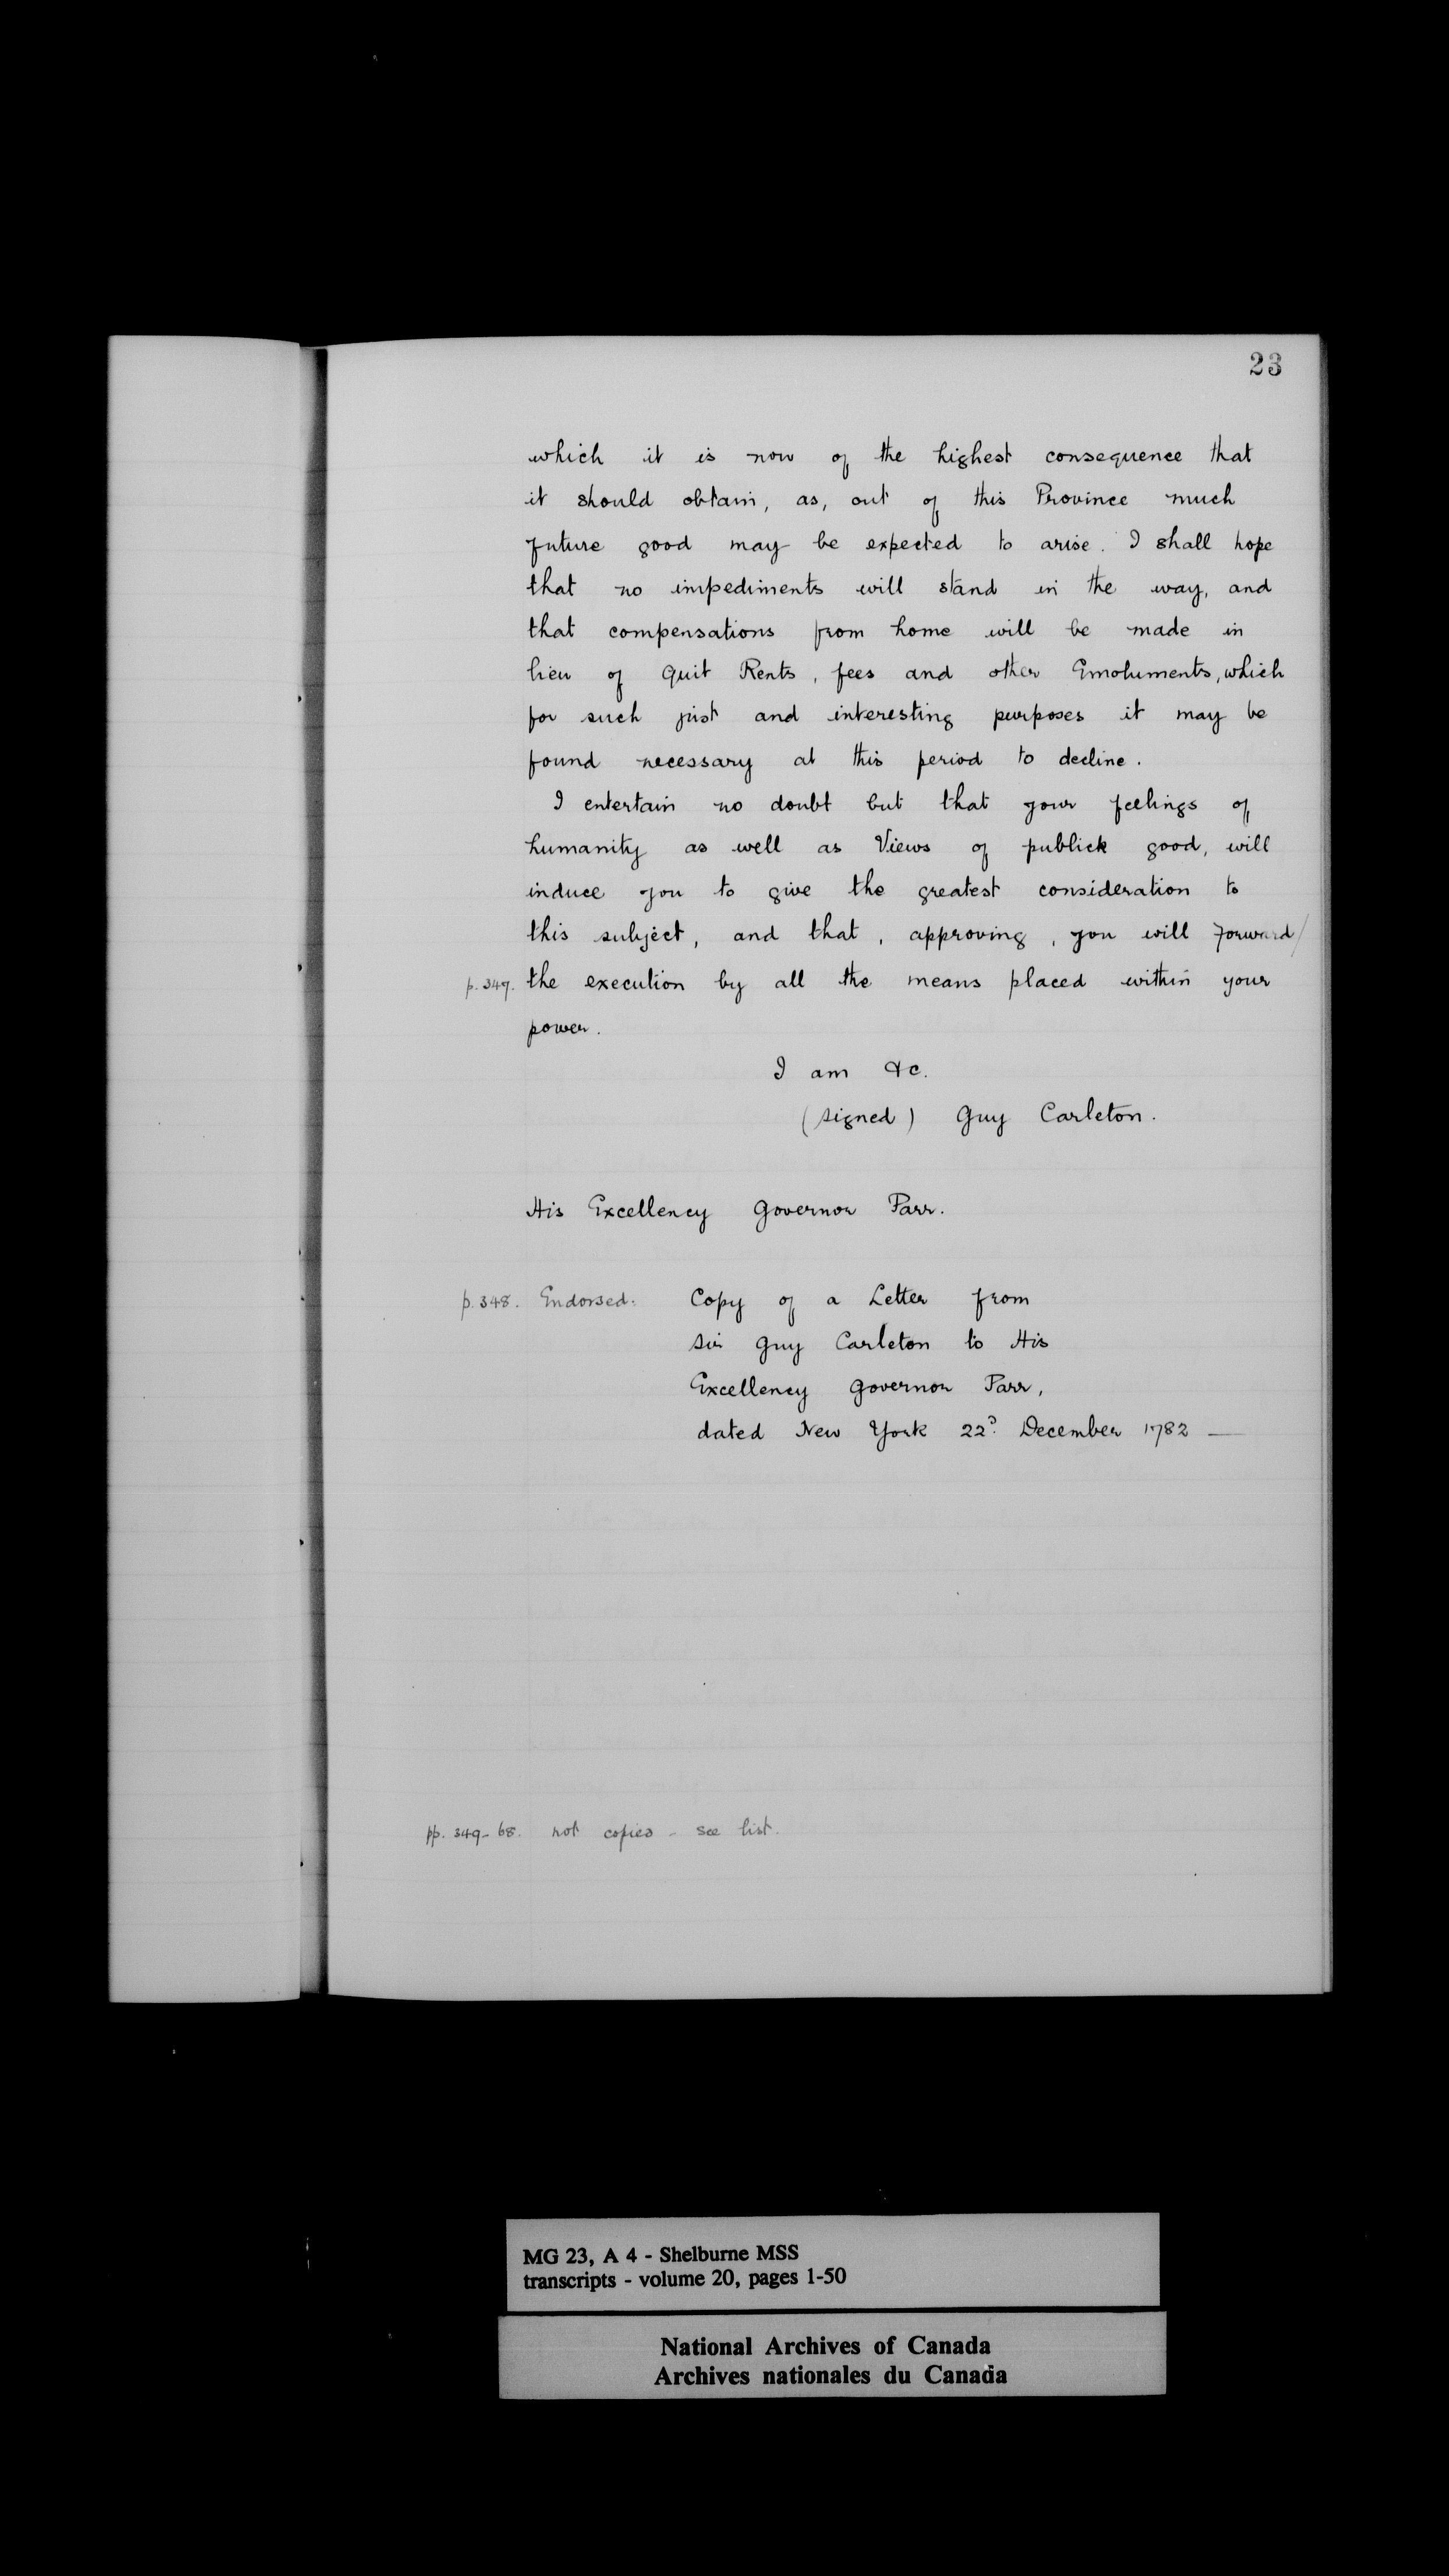 23
which it is now of the highest consequence that
it should obtain, as, out of this Province much
future good may be expected to arise. I shall hope
that no impediments will stand in the way, and
that compensations from home will be made in
lieu of Quit Rents, fees and other Emoluments, which
for such just and interesting purposes it may be
found necessary at this period to decline.
I entertain no doubt but that your feelings of
humanity as well as Views of publick good, will
induce you to give the greatest consideration to
this subject, and that, approving, you will forward/
p. 347. the execution by all the means placed within your
power.
I am &c.
(signed) Guy Carleton.
His Excellency Governor Parr.
p. 348. Endorsed: Copy of a Letter from
Sir Guy Carleton to His
Excellency Governor Parr,
dated New York 22d. December 1782 —
pp. 349-68. not copied - see list.
MG 23, A 4 - Shelburne MSS
transcripts - volume 20, pages 1-50
National Archives of Canada
Archives nationales du Canada